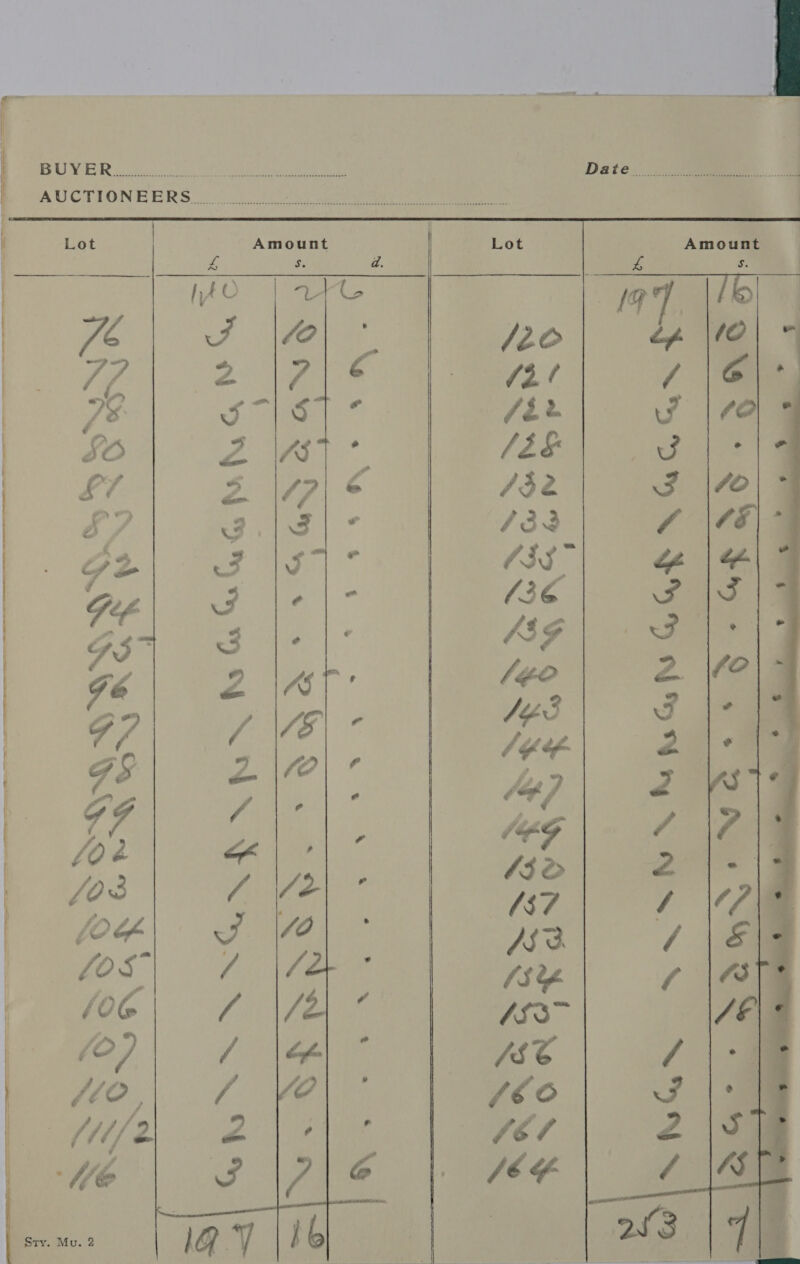 BUYER Date
AUCTIONEERS
Lot Amount Lot Amount
£ s. d. £ s.
140 2 6 197 16
76 3 10 · 120 4 10 -
77 2 7 6 121 1 6 ·
78 5 5 · 122 3 10 ·
80 2 15 · 128 3 · ·
81 2 17 6 132 3 10 ·
87 3 3 · 133 1 18 ·
92 3 5 · 135 4 4 ·
94 3 · · 136 3 3 ·
95 3 · · 139 3 · ·
96 2 15 · 140 2 10 ·
97 1 18 · 143 3 · ·
98 2 10 · 144 2 · ·
99 1 · · 147 2 15 ·
102 4 · · 149 1 7 ·
103 1 12 · 150 2 · ·
104 3 10 · 157 1 17 ·
105 1 12 · 153 1 8 ·
106 1 12 · 154 1 15 ·
107 1 4 · 155 18 ·
110 1 10 · 156 1 · ·
111/2 2 · · 160 3 · ·
116 3 7 6 161 2 5 ·
164 1 15 ·
197 16 253 7
Sty. Mu. 2